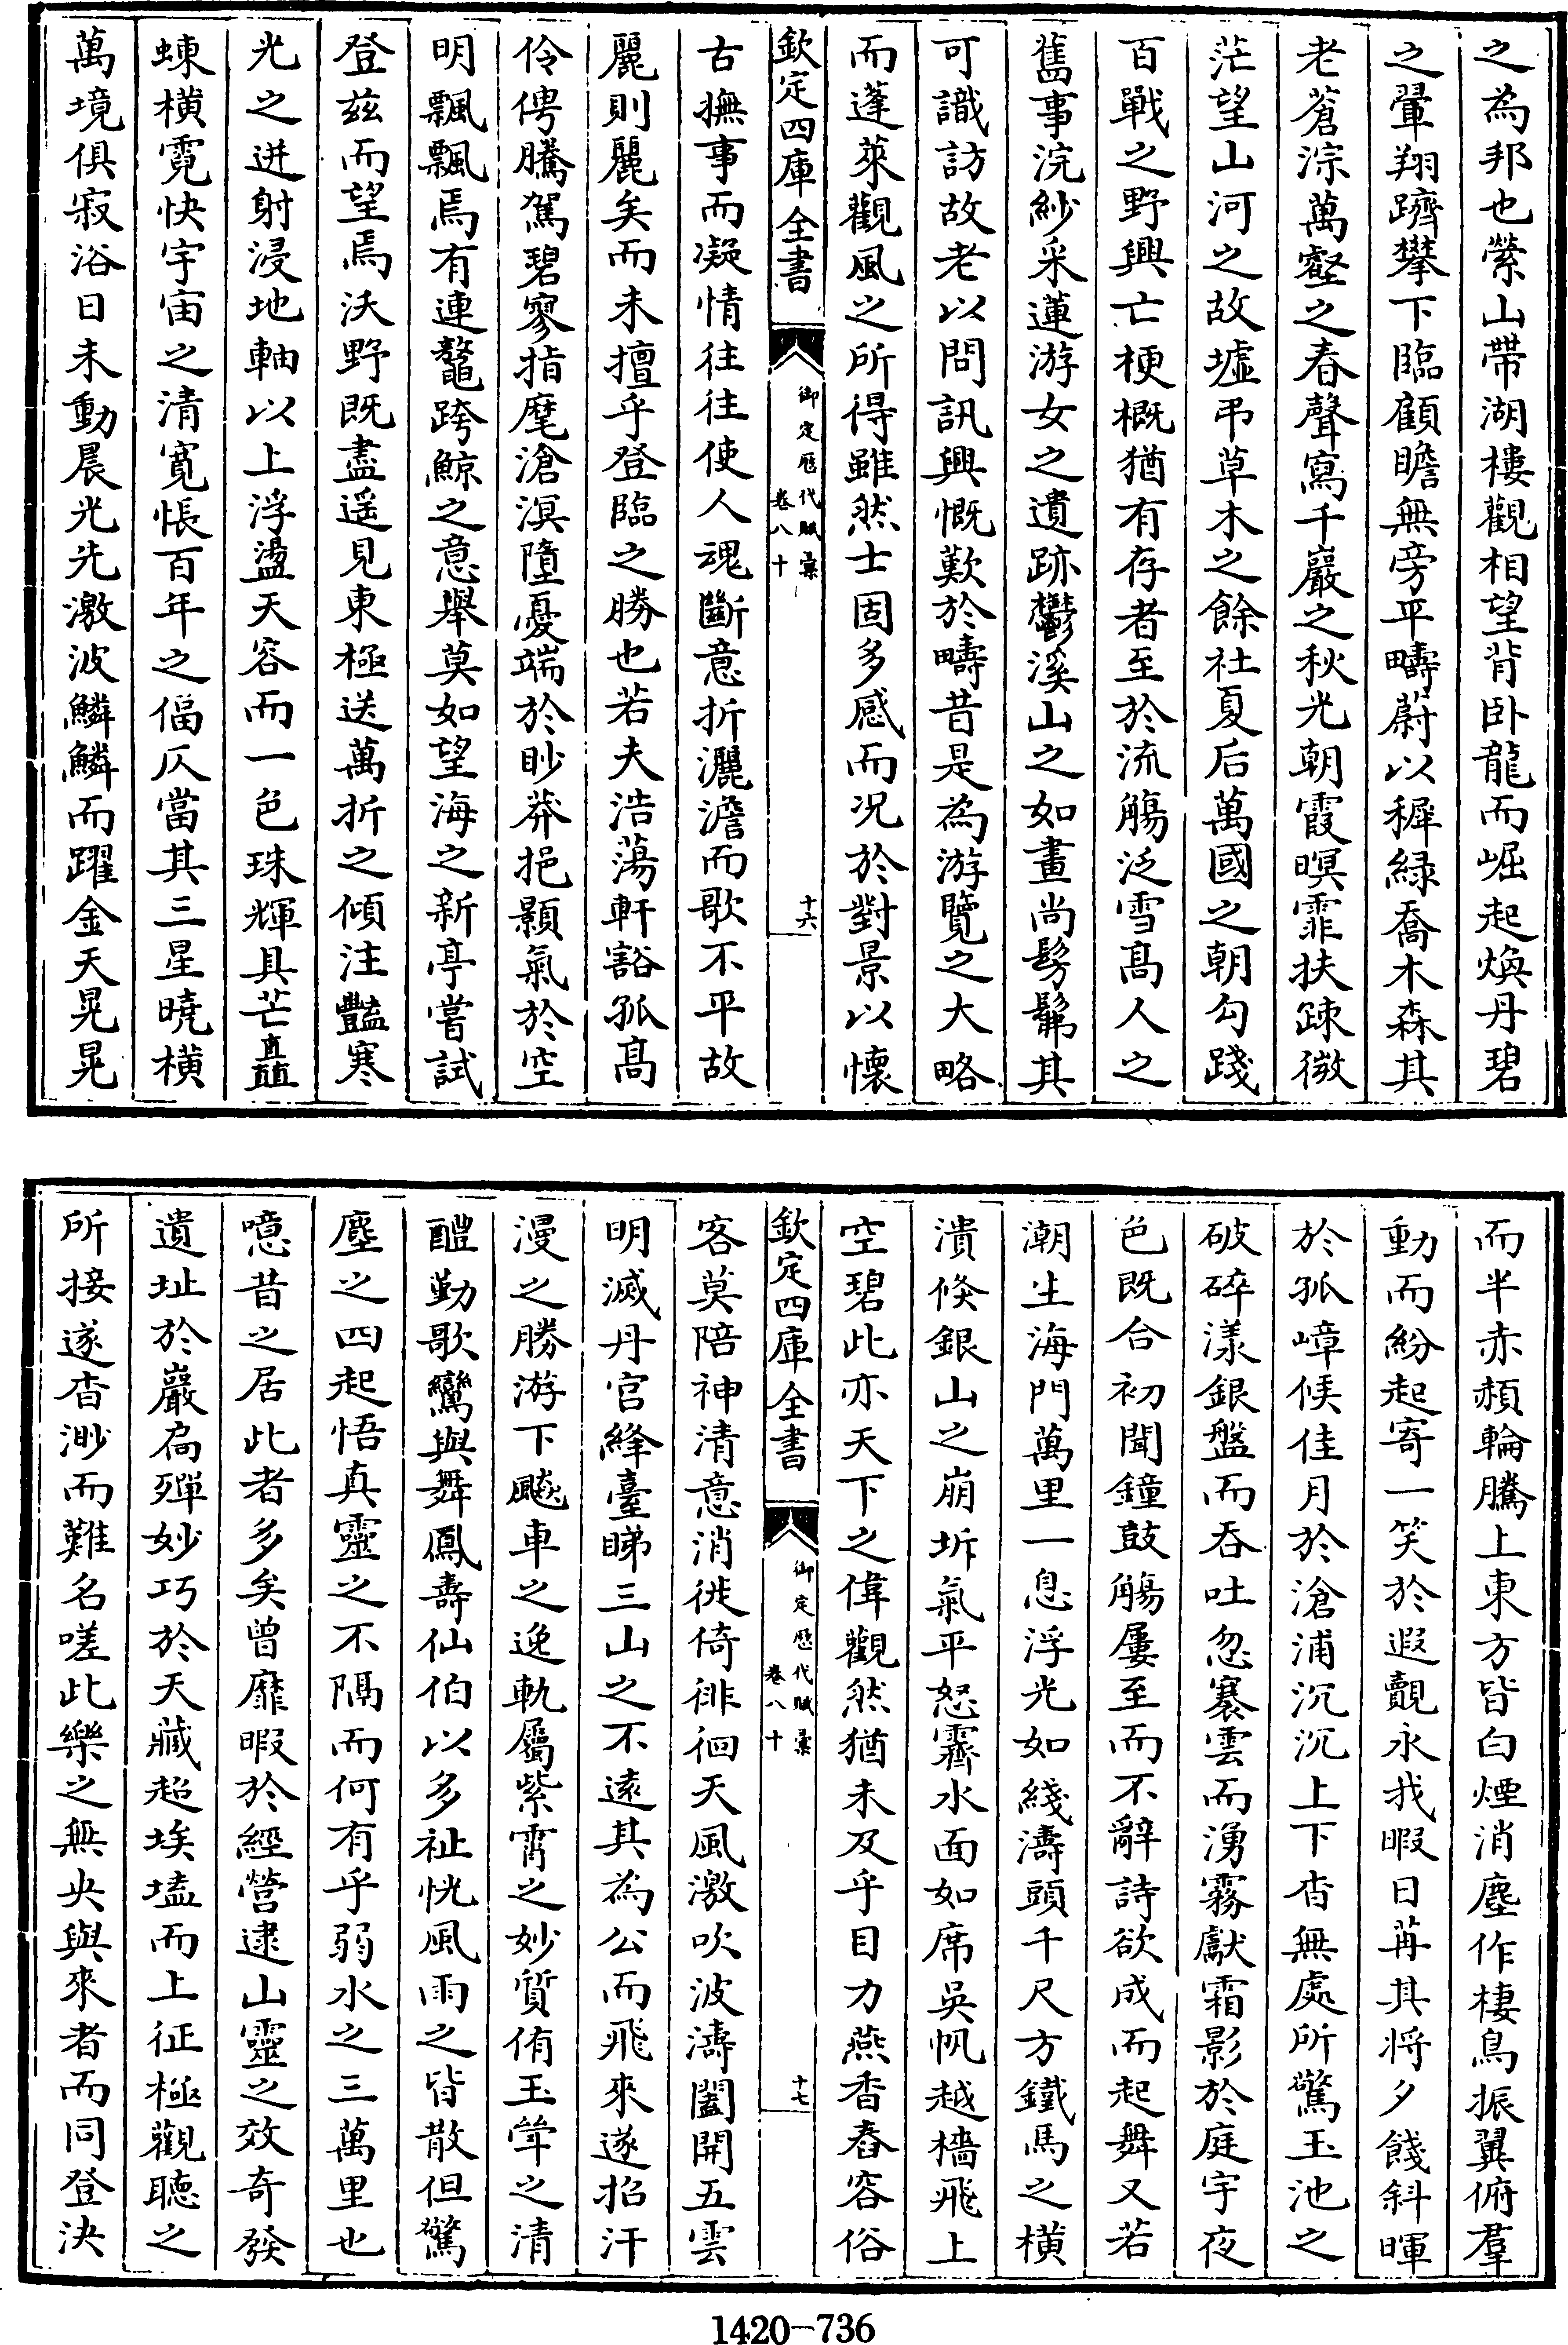 之為邦也縈山帶湖樓觀相望背卧龍而崛起煥丹碧
之翬翔躋攀下臨顧瞻無旁平疇蔚以穉緑喬木森其
老蒼淙萬壑之春聲寫千巖之秋光朝霞暝霏扶踈微
茫望山河之故墟弔草木之餘社夏后萬國之朝勾踐
百戰之野興亡梗概猶有存者至於流觴泛雪髙人之
舊事浣紗采蓮游女之遺跡鬱溪山之如畫尚髣髴其
可識訪故老以問訊興慨歎於疇昔是為游覽之大略
而蓬萊觀風之所得雖然士固多感而况於對景以懷
欽定四庫全書
御定歴代賦彙
卷八十
十六
古撫事而凝情往往使人魂斷意折灑澹而歌不平故
麗則麗矣而未擅乎登臨之勝也若夫浩蕩軒豁孤髙
伶俜騰駕碧寥指麾滄溟墮憂端於眇莽挹顥氣於空
明飄飄焉有連鼇跨鯨之意舉莫如望海之新亭嘗試
登兹而望焉沃野既盡遥見東極送萬折之傾注豔寒
光之迸射浸地軸以上浮盪天容而一色珠輝具芒矗
蝀橫霓快宇宙之清寛悵百年之偪仄當其三星曉橫
萬境俱寂浴日未動晨光先激波鱗鱗而躍金天晃晃
而半赤頳輪騰上東方皆白煙消塵作棲鳥振翼俯羣
動而紛起寄一笑於遐觀永我暇日苒其將夕餞斜暉
於孤嶂候佳月於滄浦沉沉上下杳無處所驚玉池之
破碎漾銀盤而吞吐忽褰雲而湧霧獻霜影於庭宇夜
色既合初聞鐘鼓觴屢至而不辭詩欲成而起舞又若
潮生海門萬里一息浮光如綫濤頭千尺方鐵馬之橫
潰倐銀山之崩坼氣平怒霽水面如席吳帆越檣飛上
空碧此亦天下之偉觀然猶未及乎目力燕香春容俗
欽定四庫全書
御定歴代賦彙
卷八十
十七
客莫陪神清意消徙倚徘徊天風激吹波濤闔開五雲
明滅丹宫絳臺睇三山之不逺其為公而飛來遂招汗
漫之勝游下飈車之逸軌屬紫霄之妙質侑玉觶之清
醴勤歌鸞與舞鳳壽仙伯以多祉恍風雨之皆散但驚
塵之四起悟真靈之不隔而何有乎弱水之三萬里也
噫昔之居此者多矣曾靡暇於經營逮山靈之效奇發
遺址於巖扃殫妙巧於天藏超埃壒而上征極觀聽之
所接遂杳渺而難名嗟此樂之無央與來者而同登決
1420—736